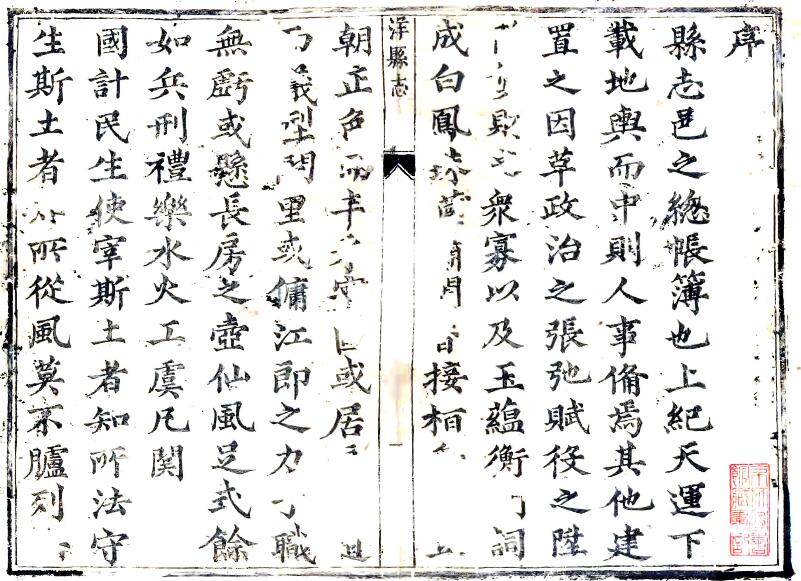 序
縣志邑之總帳簿也上紀天運下
載地輿而中則人事備焉其他建
置之因革政治之張弛賦役之陞
衆寡以及玉蘊衡 詞
成白鳳 接栢
洋縣志
一
朝正色 或居
義型閭里或傭江郎之力 職
無虧或懸長房之壺仙風足式餘
如兵刑禮樂水火工虞凡関
國計民生使宰斯土者知所法守
生斯土者 所從風莫不臚列